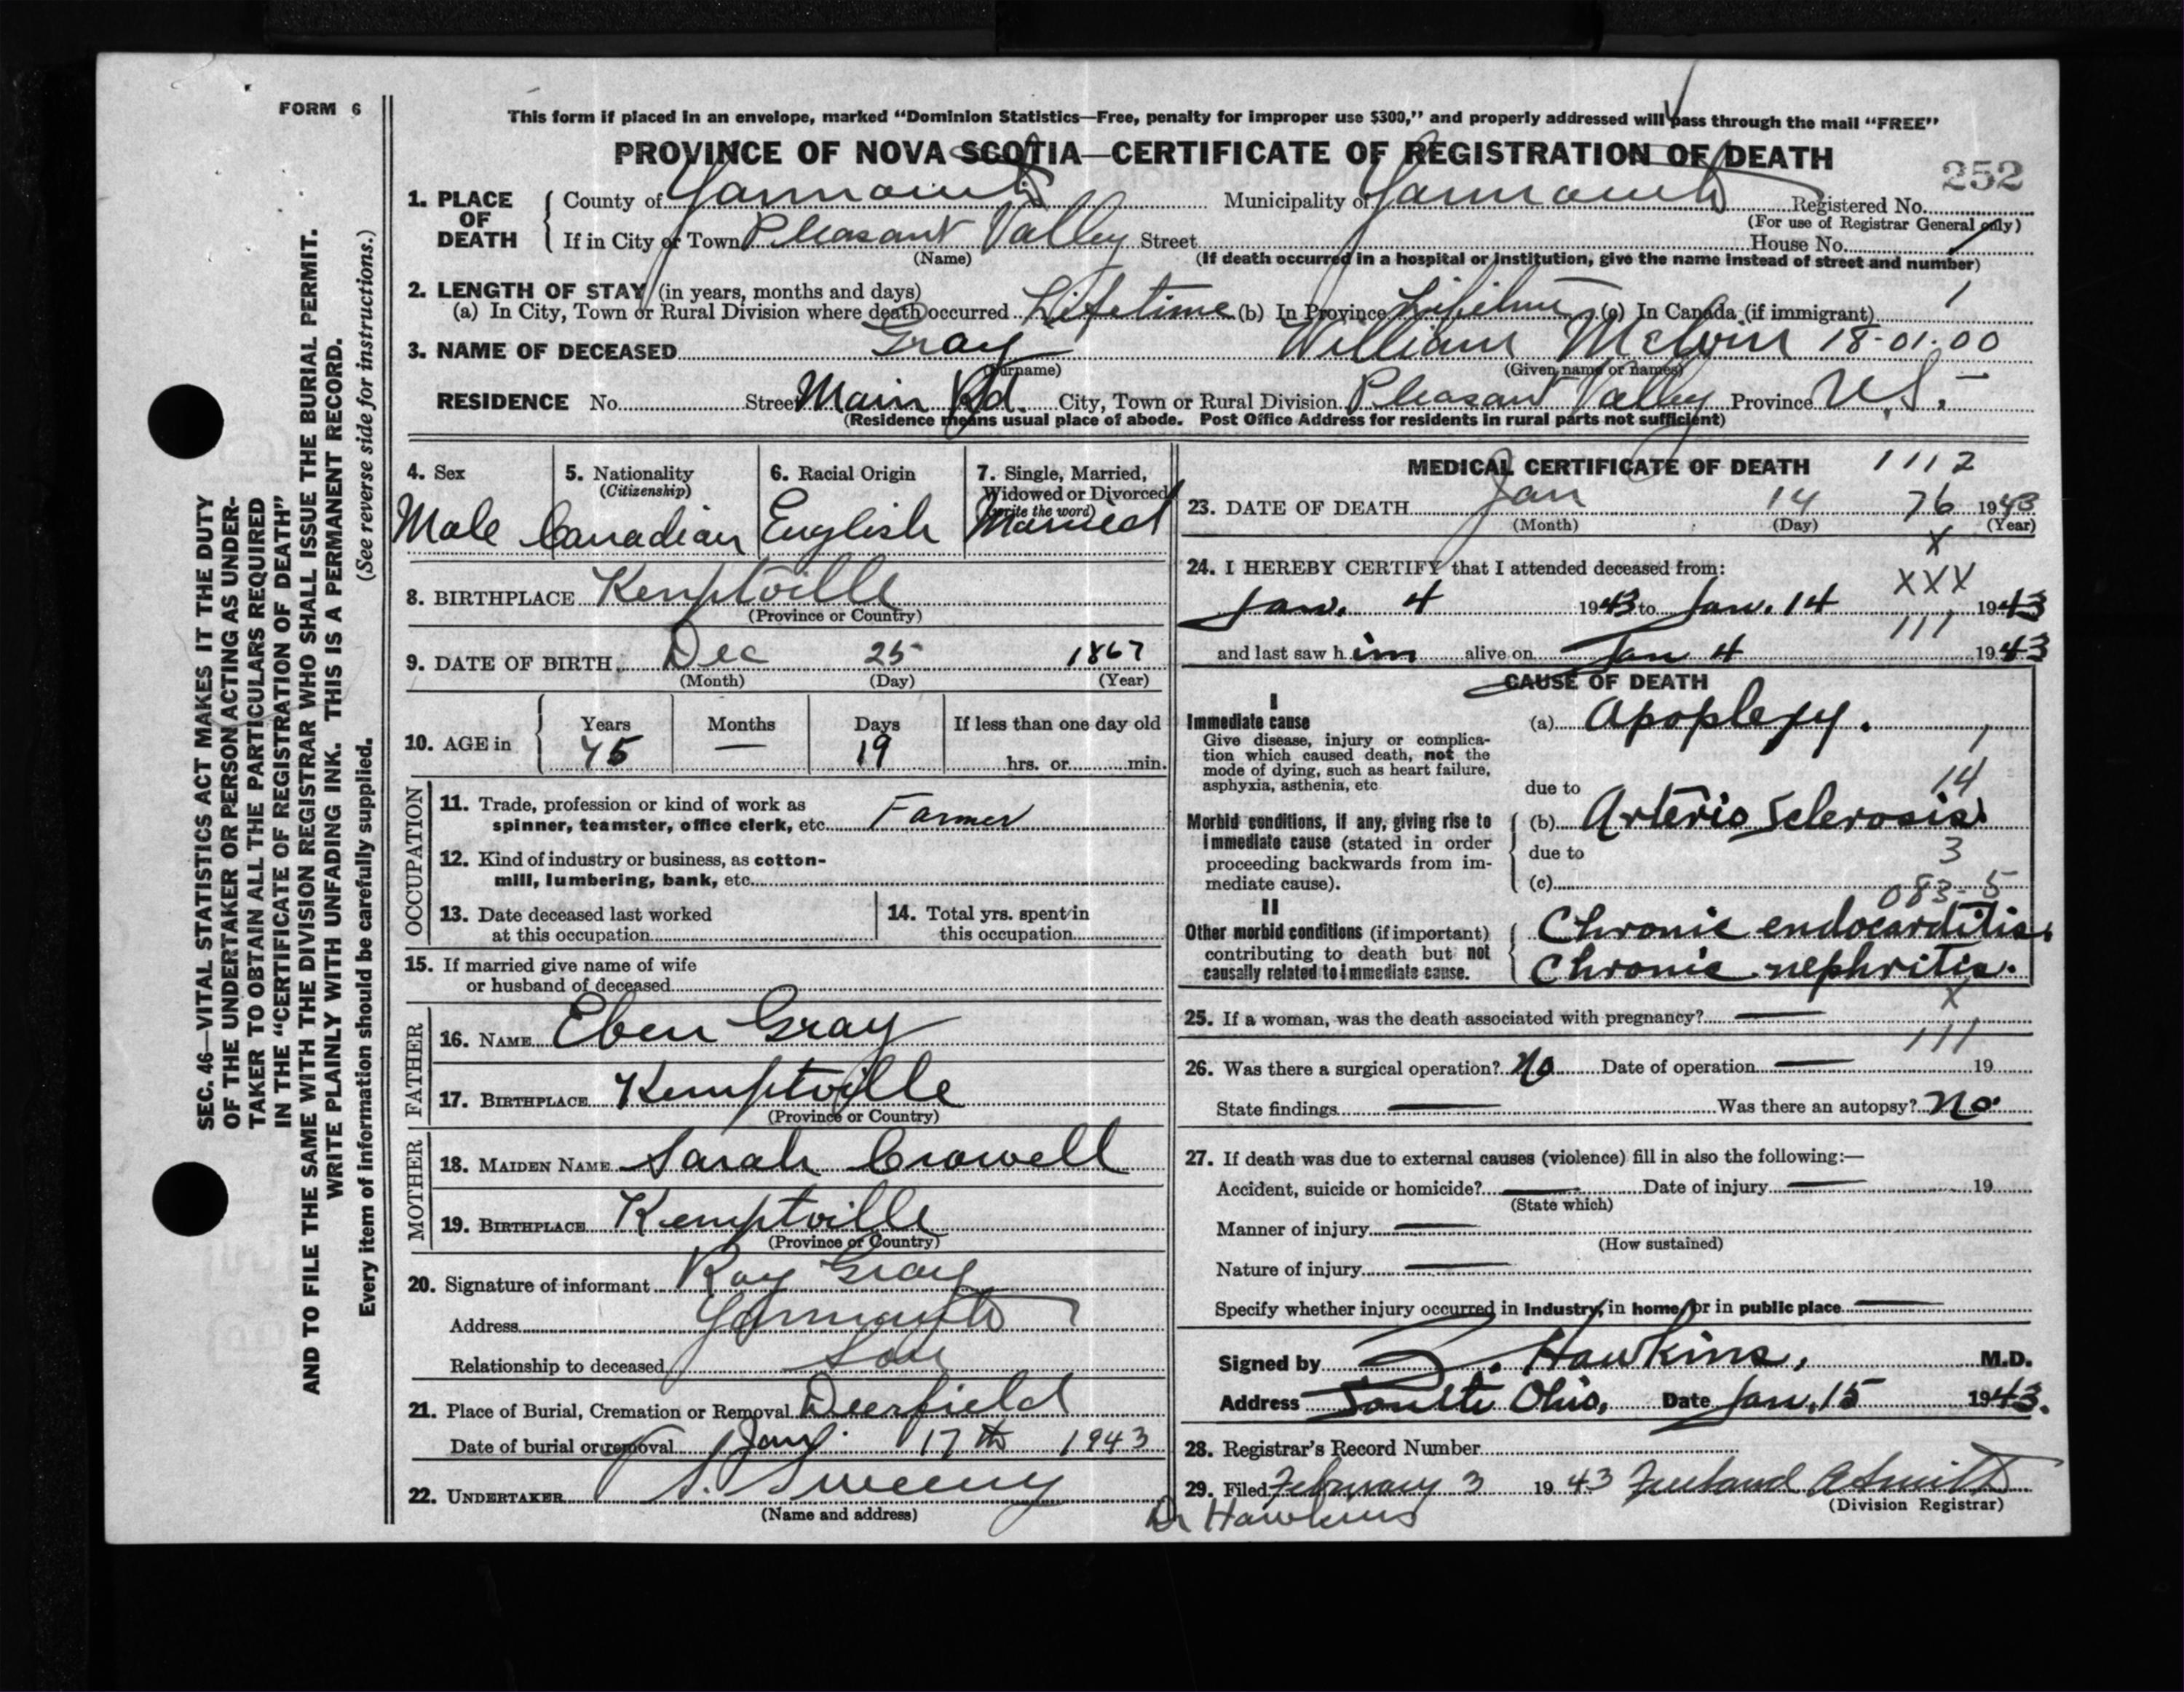 FORM 6
This form if placed in an envelope, marked “Dominion Statistics—Free, penalty for improper use $300,” and properly addressed will pass through the mail “FREE”
PROVINCE OF NOVA SCOTIA—CERTIFICATE OF REGISTRATION OF DEATH
252
1. PLACE OF DEATH County of Yarmouth Municipality of Yarmouth Registered No.
(For use of Registrar General only)
If in City or Town Pleasant Valley Street House No.
(Name) (If death occurred in a hospital or institution, give the name instead of street and number)
2. LENGTH OF STAY (in years, months and days)
(a) In City, Town or Rural Division where death occurred Lifetime (b) In Province Lifetime (c) In Canada (if immigrant)
3. NAME OF DECEASED Gray William Melvin 18-01-00
(Surname) (Given name or names)
RESIDENCE No. Street Main Rd. City, Town or Rural Division Pleasant Valley Province N.S.
(Residence means usual place of abode. Post Office Address for residents in rural parts not sufficient)
4. Sex 5. Nationality 6. Racial Origin 7. Single, Married,
(Citizenship) Widowed or Divorced
(write the word)
Male Canadian English Married
8. BIRTHPLACE Kemptville
(Province or Country)
9. DATE OF BIRTH Dec 25 1867
(Month) (Day) (Year)
Years Months Days If less than one day old
10. AGE in 75 — 19 hrs. or min.
OCCUPATION
11. Trade, profession or kind of work as
spinner, teamster, office clerk, etc. Farmer
12. Kind of industry or business, as cotton-
mill, lumbering, bank, etc.
13. Date deceased last worked 14. Total yrs. spent in
at this occupation this occupation
15. If married give name of wife
or husband of deceased
FATHER
16. NAME Eben Gray
17. BIRTHPLACE Kemptville
(Province or Country)
MOTHER
18. MAIDEN NAME Sarah Crowell
19. BIRTHPLACE Kemptville
(Province or Country)
20. Signature of informant Ray Gray
Address Yarmouth
Relationship to deceased Son
21. Place of Burial, Cremation or Removal Deerfield
Date of burial or removal Jany. 17th 1943
22. UNDERTAKER Sweeny
(Name and address)
MEDICAL CERTIFICATE OF DEATH 1112
23. DATE OF DEATH Jan 14 76 1943
(Month) (Day) (Year)
X
24. I HEREBY CERTIFY that I attended deceased from:
XXX
Jan. 4 1943 to Jan. 14 1943
111
and last saw him alive on Jan 4 1943
CAUSE OF DEATH
I
Immediate cause (a) Apoplexy.
Give disease, injury or complica-
tion which caused death, not the
mode of dying, such as heart failure,
asphyxia, asthenia, etc
14
due to
Morbid conditions, if any, giving rise to (b) Arterio Sclerosis
immediate cause (stated in order due to
proceeding backwards from im- 3
mediate cause). (c)
083-5
II
Other morbid conditions (if important) Chronic endocarditis.
contributing to death but not
causally related to immediate cause. Chronic nephritis.
X
25. If a woman, was the death associated with pregnancy? —
111
26. Was there a surgical operation? No Date of operation — 19
State findings — Was there an autopsy? No.
27. If death was due to external causes (violence) fill in also the following:—
Accident, suicide or homicide? — Date of injury — 19
(State which)
Manner of injury —
(How sustained)
Nature of injury —
Specify whether injury occurred in Industry, in home, or in public place —
Signed by Hawkins, M.D.
Address South Ohio, Date Jan. 15 1943.
28. Registrar's Record Number
29. Filed February 3 1943 A Smith
(Division Registrar)
Dr Hawkins
SEC. 46—VITAL STATISTICS ACT MAKES IT THE DUTY
OF THE UNDERTAKER OR PERSON ACTING AS UNDER-
TAKER TO OBTAIN ALL THE PARTICULARS REQUIRED
IN THE “CERTIFICATE OF REGISTRATION OF DEATH”
AND TO FILE THE SAME WITH THE DIVISION REGISTRAR WHO SHALL ISSUE THE BURIAL PERMIT.
WRITE PLAINLY WITH UNFADING INK. THIS IS A PERMANENT RECORD.
Every item of information should be carefully supplied. (See reverse side for instructions.)